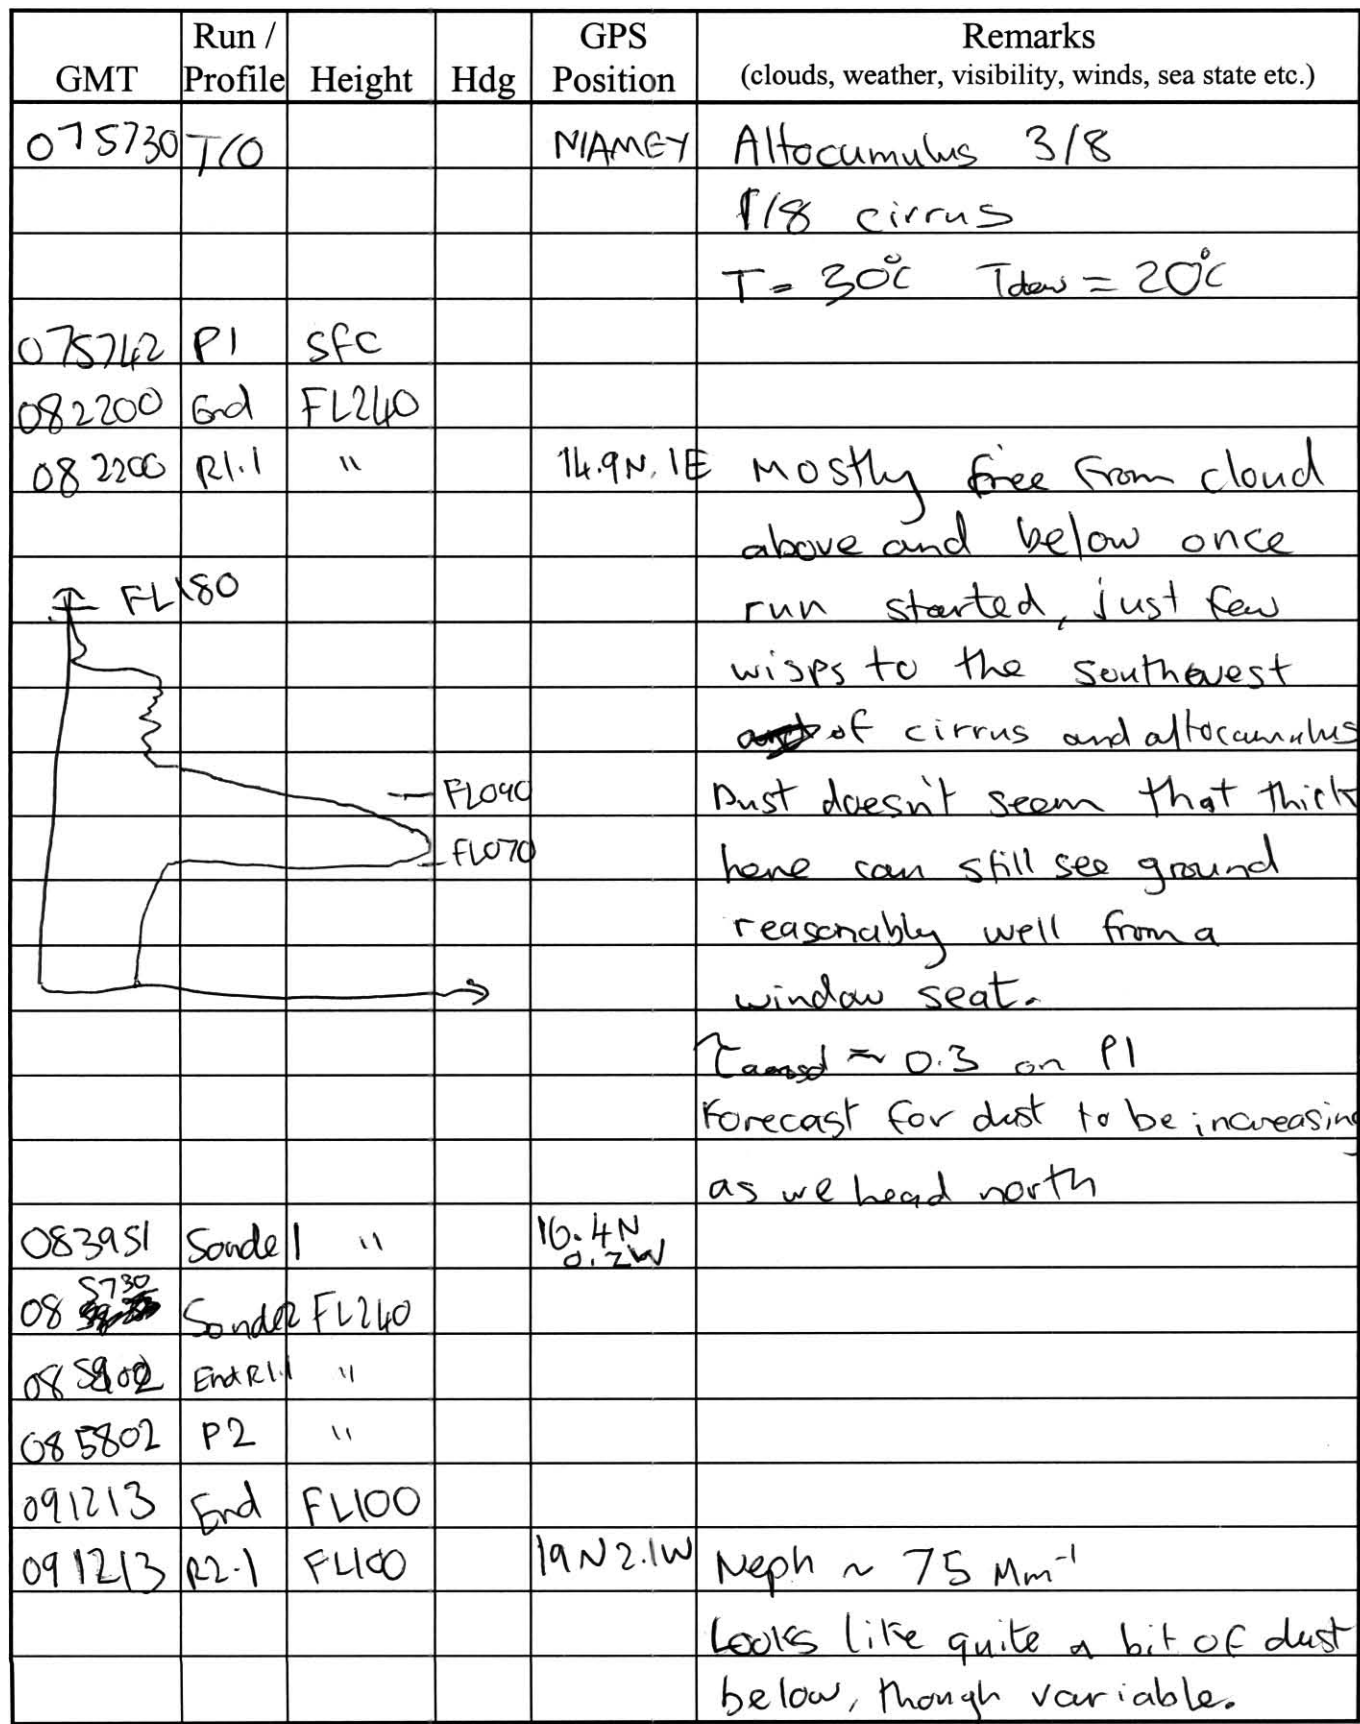 GMT Run / Profile Height Hdg GPS Position Remarks (clouds, weather, visibility, winds, sea state etc.)
075730 T/O NIAMEY Altocumulus 3/8
1/8 cirrus
T = 30°C Tdew = 20°C
075742 P1 sfc
082200 End FL240
082200 R1.1 " 14.9N, 1E Mostly free from cloud
above and below once
FL180 run started, just few
wisps to the southwest
of cirrus and altocumulus
FL090 Dust doesn't seem that thick
FL070 here can still see ground
reasonably well from a
window seat.
≈ 0.3 on P1
Forecast for dust to be increasing
as we head north
083951 Sonde 1 " 16.4N 0.2W
085730 Sonde2 FL240
08 End R1.1 "
085802 P2 "
091213 End FL100
091213 R2.1 FL100 19N 2.1W Neph ~ 75 Mm⁻¹
Looks like quite a bit of dust
below, though variable.